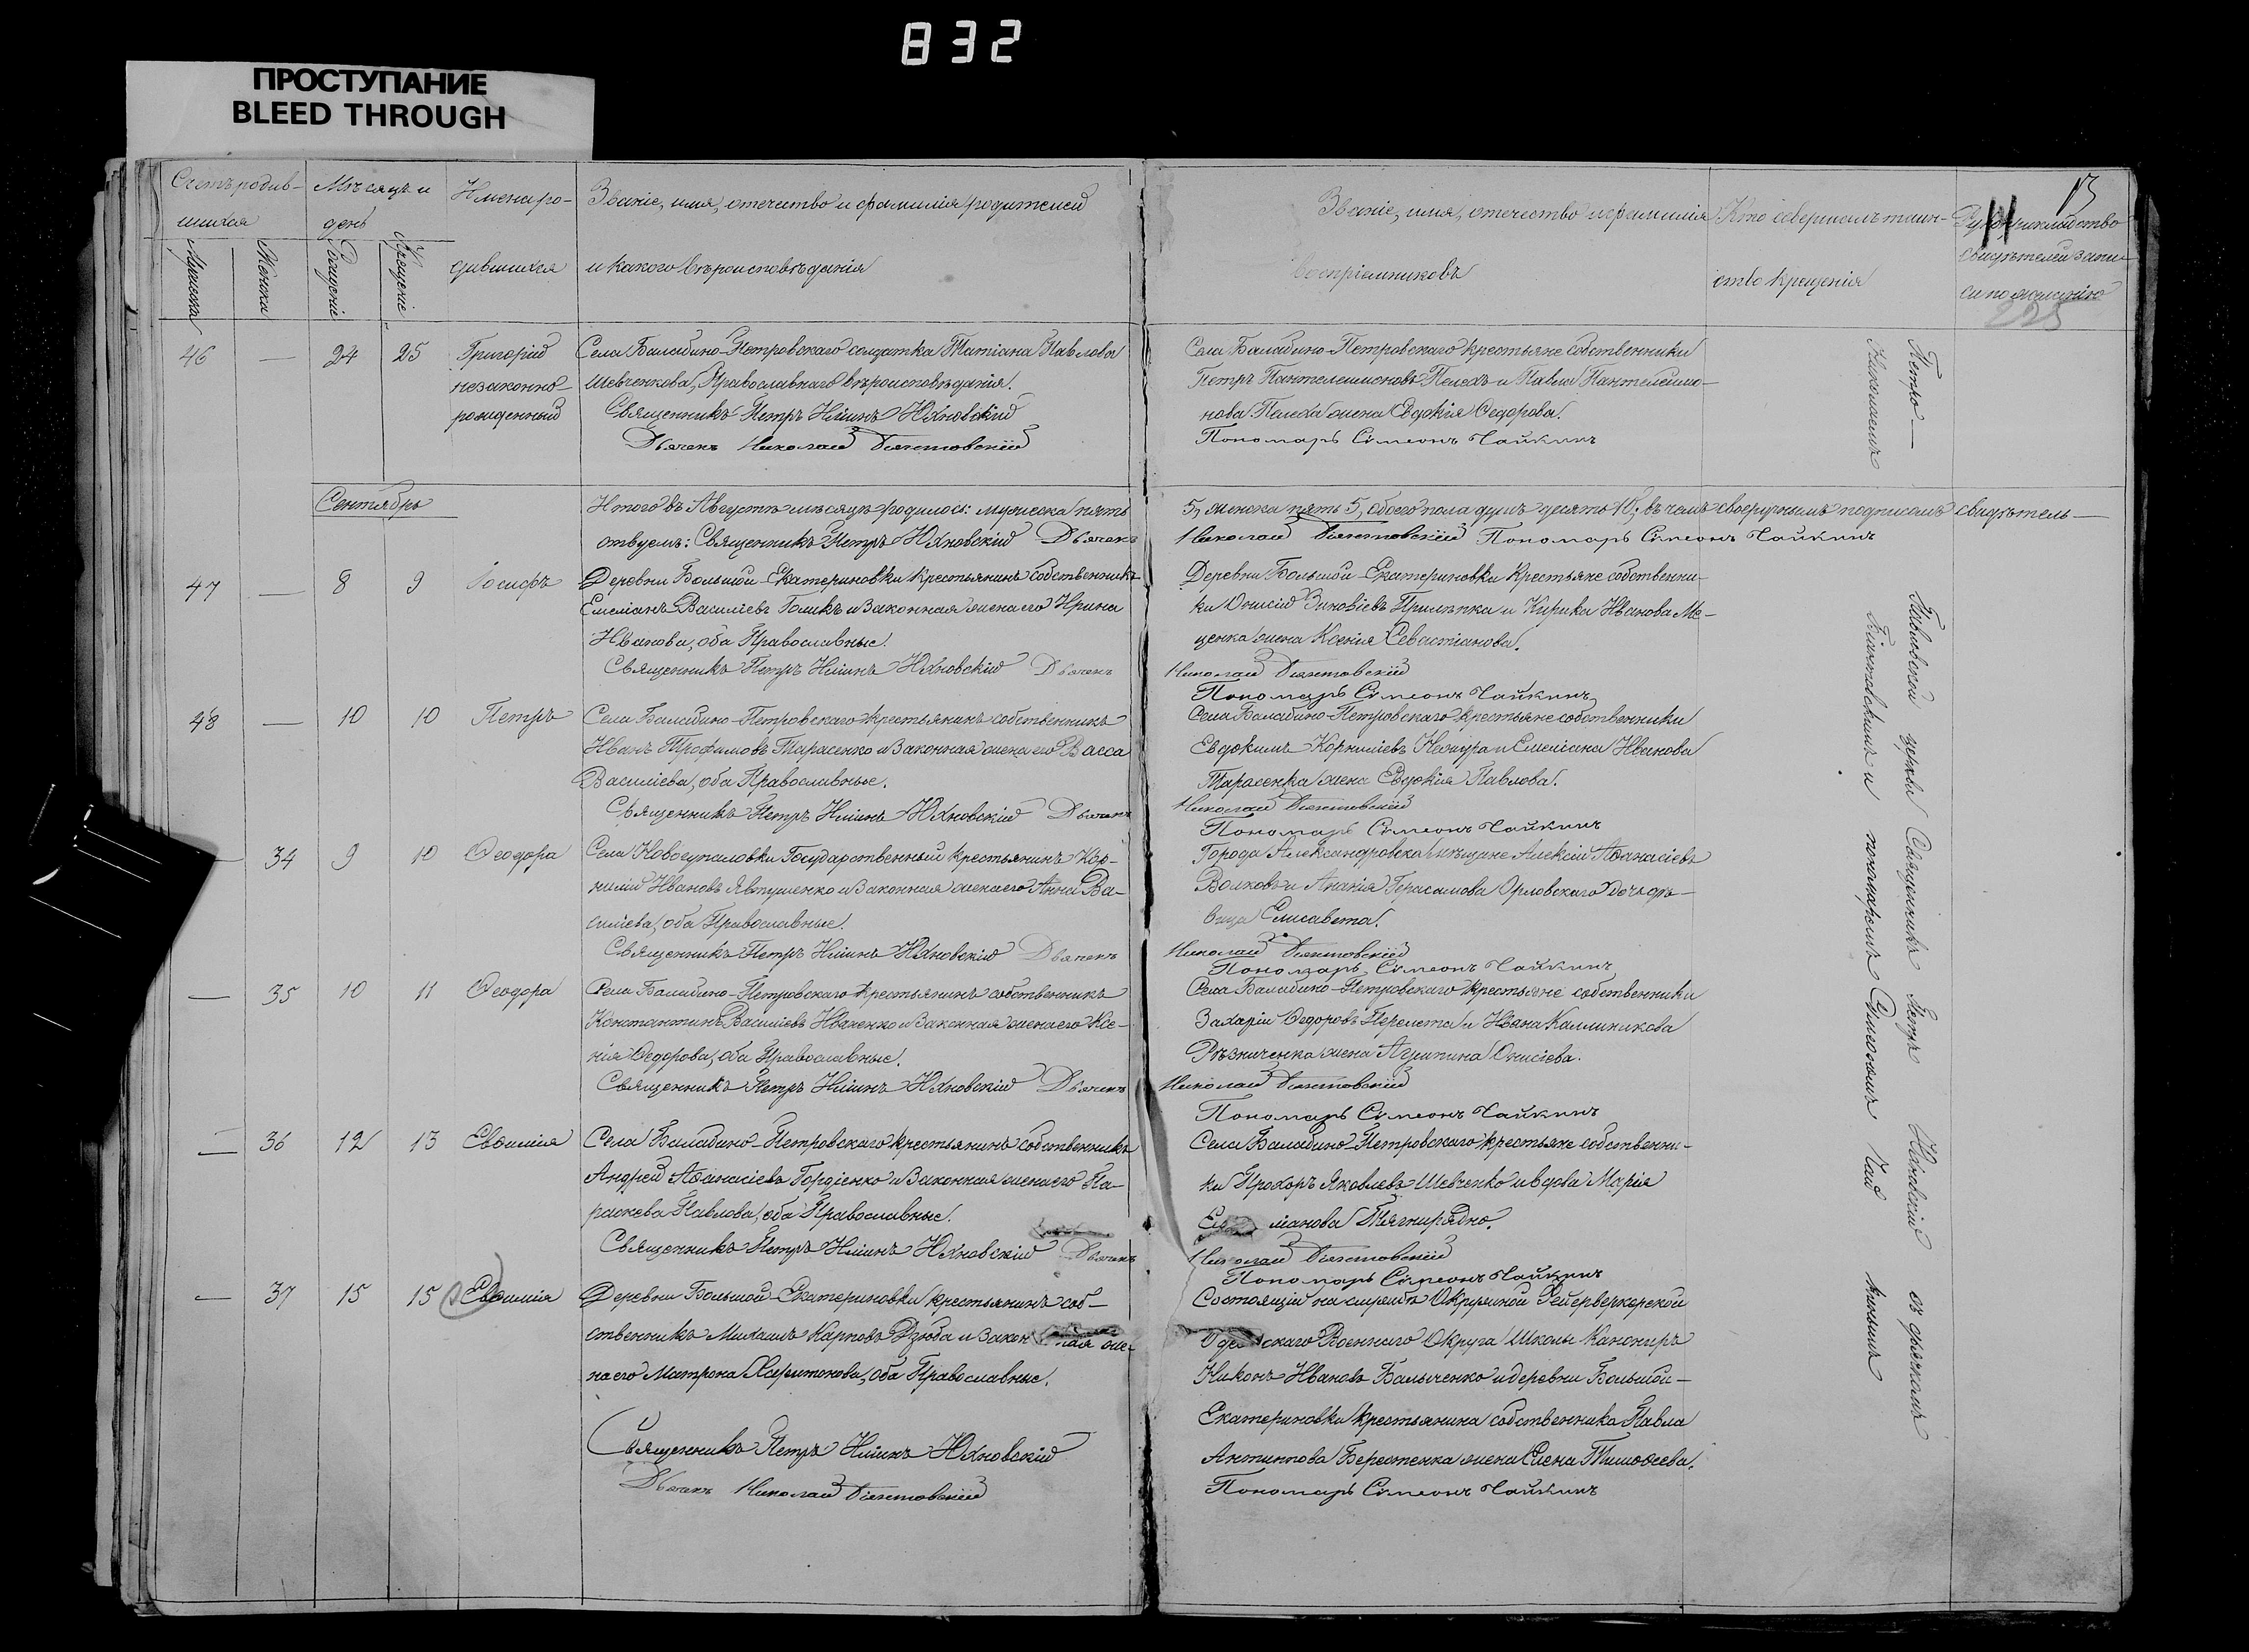 832
ПРОСТУПАНИЕ
BLEED THROUGH
13
Счетъ родив-
шихся
Мѣсяцъ и
день
Имена ро-
дившихся
Званіе, имя, отечество и фамилія родителей
и какого вѣроисповѣданія
Званіе, имя, отечество и фамилія
воспріемниковъ
Кто совершалъ таин-
ство крещенія
Рукоприкладство
свидѣтелей запи-
си по желанію
225
Мужеска
Женска
Рожденіе
Крещеніе
46 — 24 25 Григорій
незаконно-
рожденный
Села Балабино-Петровскаго солдатка Татіана Павлова
Шевченкова, Православнаго вѣроисповѣданія.
Священникъ Петръ Юхновскій
Дьячекъ Николай
Села Балабино-Петровскаго крестьяне собственники
Петръ Пантелеимоновъ Пелехъ и Павла Пантелеимо-
нова Пелеха жена Евдокія Ѳедорова.
Пономарь Сѵмеонъ Чайкинъ
Сентябрь
Итого въ Августѣ мѣсяцѣ родилось: мужеска пять
5, женска пять 5, обоего пола душъ десять 10; въ чемъ своеручнымъ подписомъ свидѣтель-
ствуемъ: Священникъ Петръ Юхновскій Дьячекъ
Николай Пономарь Сѵмеонъ Чайкинъ
47 — 8 9 Іосифъ
Деревни Большой-Екатериновки крестьянинъ собственникъ
Емеліанъ Василіевъ Голикъ и законная жена его Ирина
Иванова, оба Православные.
Священникъ Петръ Юхновскій Дьячекъ
Деревни Большой-Екатериновки крестьяне собственни-
ки Онисій Зиновіевъ Прилѣпка и Кирика Иванова Ме-
ценка жена Ксенія Севастіанова.
Николай
Пономарь Сѵмеонъ Чайкинъ
48 — 10 10 Петръ
Села Балабино-Петровскаго крестьянинъ собственникъ
Иванъ Трофимовъ Тарасенко и законная жена его Васса
Василіева, оба Православные.
Священникъ Петръ Юхновскій Дьячекъ
Села Балабино-Петровскаго крестьяне собственники
Евдокимъ Корниліевъ и Емеліана Иванова
Тарасенка жена Евдокія Павлова.
Николай
Пономарь Сѵмеонъ Чайкинъ
— 34 9 10 Ѳеодора
Села Новогупаловки Государственный крестьянинъ Кор-
нилій Ивановъ Явтушенко и законная жена его Анна Ва-
силіева, оба Православные.
Священникъ Петръ Юхновскій Дьячекъ
Города Александровска мѣщане Алексій Аѳанасіевъ
Волковъ и Ананія Герасимова Орловскаго дочь дѣ-
вица Елисавета.
Николай
Пономарь Сѵмеонъ Чайкинъ
— 35 10 11 Ѳеодора
Села Балабино-Петровскаго крестьянинъ собственникъ
Константинъ Василіевъ Ивченко и законная жена его Ксе-
нія Ѳедорова, оба Православные.
Священникъ Петръ Юхновскій Дьячекъ
Села Балабино-Петровскаго крестьяне собственники
Захарія Ѳедоровъ Перелета и Ивана Каллиникова
Рѣзниченка жена Агрипина Онисіева.
Николай
Пономарь Сѵмеонъ Чайкинъ
— 36 12 13 Евѳимія
Села Балабино-Петровскаго крестьянинъ собственникъ
Андрей Аѳанасіевъ Гордіенко и законная жена его Па-
раскева Павлова, оба Православные.
Священникъ Петръ Юхновскій Дьячекъ
Села Балабино-Петровскаго крестьяне собственни-
ки Прохоръ Яковлевъ Шевченко и вдова Марія
Тягнирядно.
Николай
Пономарь Сѵмеонъ Чайкинъ
— 37 15 15 Евѳимія
Деревни Большой-Екатериновки крестьянинъ соб-
ственникъ Михаилъ Карповъ Дзюба и законная же-
на его Матрона Харитонова, оба Православные.
Священникъ Петръ Юхновскій
Дьячекъ Николай
Состоящій на службѣ Окружной Фейерверкерской
Одесскаго Военнаго Округа Школы Канониръ
Никонъ Ивановъ Балыченко и деревни Большой-
Екатериновки крестьянина собственника Павла
Антипова Берестенка жена Елена Тимоѳеева.
Пономарь Сѵмеонъ Чайкинъ
Петро-
Павловской церкви Священникъ Петръ Юхновскій съ дьячкомъ
Николаемъ и пономаремъ Сѵмеономъ Чай-
кинымъ